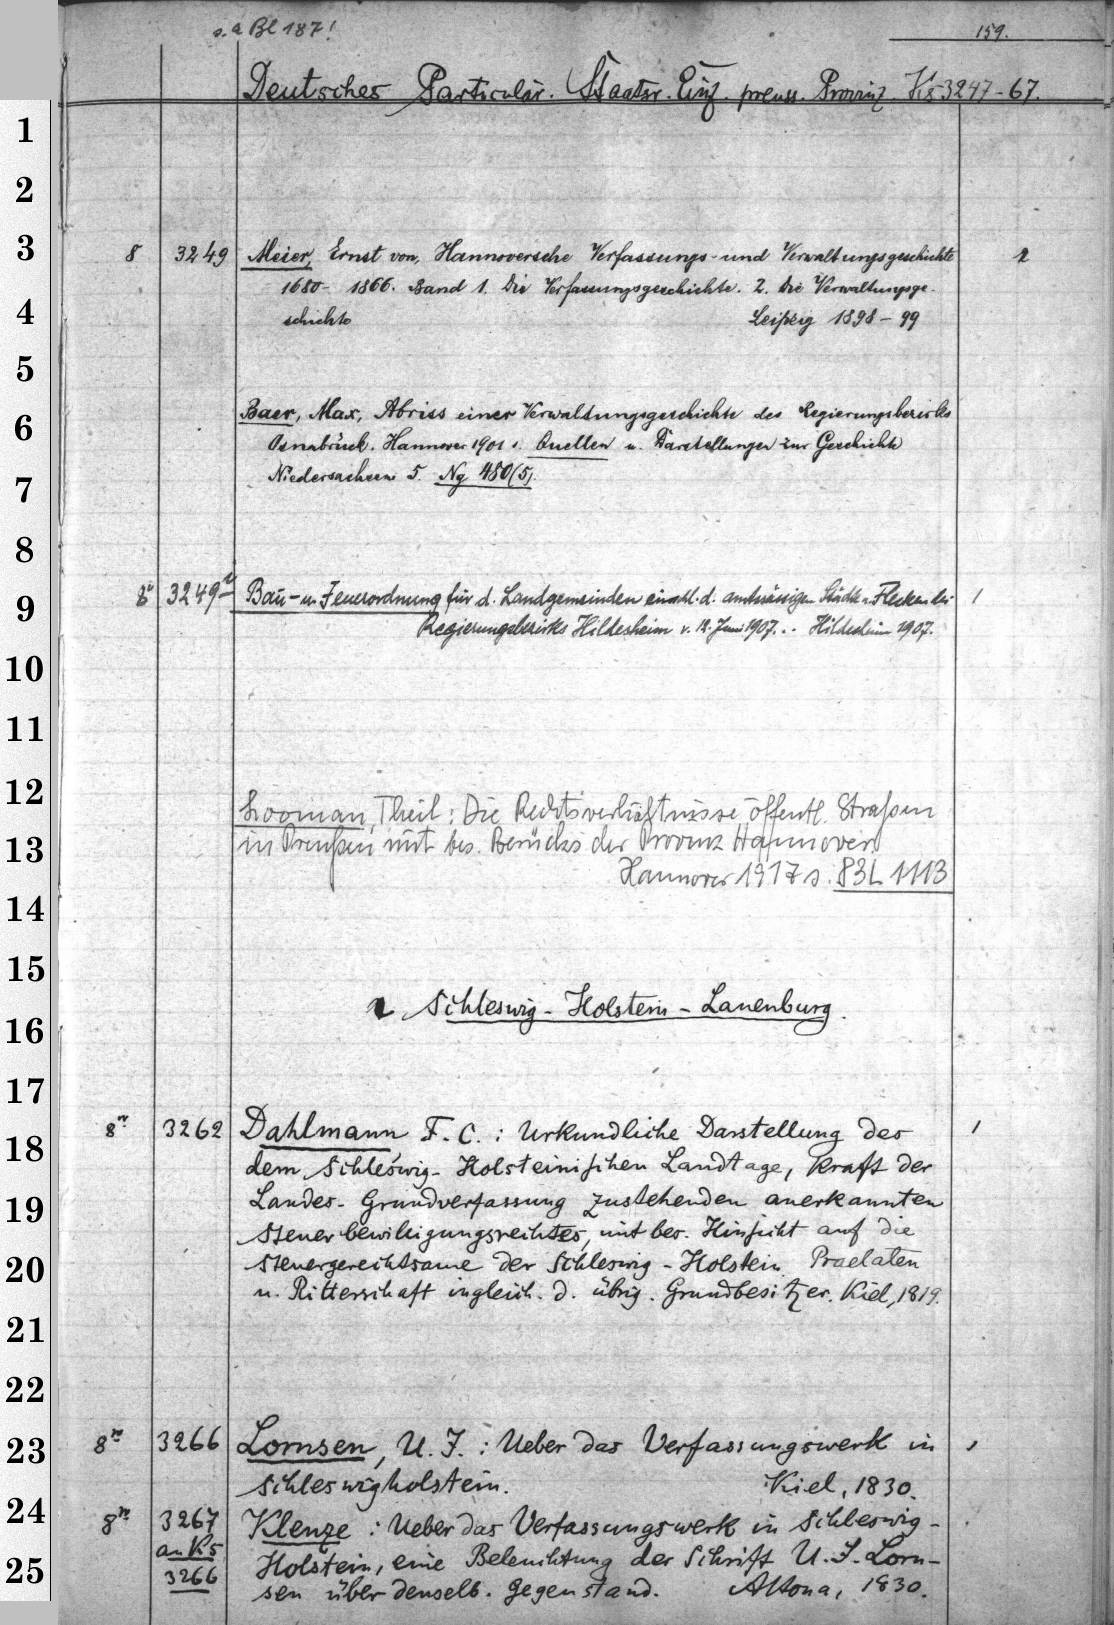 s. a Bl 187! 159.
Deutsches Particulär. Staatsr. Einz. preuss. Provinz. Ks 3247-67.
1
2
3
8 3249 Meier, Ernst von, Hannoversche Verfassungs- und Verwaltungsgeschichte 2
1680- 1866. Band 1. Die Verfassungsgeschichte. 2. Die Verwaltungsge-
4
schichte Leipzig 1898-99
5
6
Baer, Max, Abriss einer Verwaltungsgeschichte des Regierungsbezirks
Osnabrück. Hannover 1901 s. Quellen u. Darstellungen zur Geschichte
7
Niedersachsens 5. Ng 480(5).
8
9
8° 3249 Bau- u. Feuerordnung für d. Landgemeinden einschl. d. amtsässigen Städte u. Flecken des 1
Regierungsbezirks Hildesheim v. 12. Juni 1907. .. Hildesheim 1907.
10
11
12
Looman, Theil: Die Rechtsverhältnisse öffentl. Straßen
13
in Preußen mit bes. Berücks der Provinz Hannover.
Hannover 1917 s. 83L 1113
14
15
16
Schleswig-Holstein-Lauenburg.
17
18
8° 3262 Dahlmann F. C.: Urkundliche Darstellung des 1
dem Schleswig-Holsteinischen Landtage, kraft der
19
Landes-Grundverfassung zustehenden anerkannten
Steuerbewilligungsrechtes, mit bes. Hinsicht auf die
20
Steuergerechtsame der Schleswig-Holstein Praelaten
u. Ritterschaft ingleich. d. übrig. Grundbesitzer. Kiel, 1819.
21
22
23
8° 3266 Lornsen, U. J.: Ueber das Verfassungswerk in 1
Schleswigholstein. Kiel, 1830.
24
8° 3267 Klenze: Ueber das Verfassungswerk in Schleswig-
an Ks
3266
25
Holstein, eine Beleuchtung der Schrift U. J. Lorn-
sen über denselb. Gegenstand. Altona, 1830.